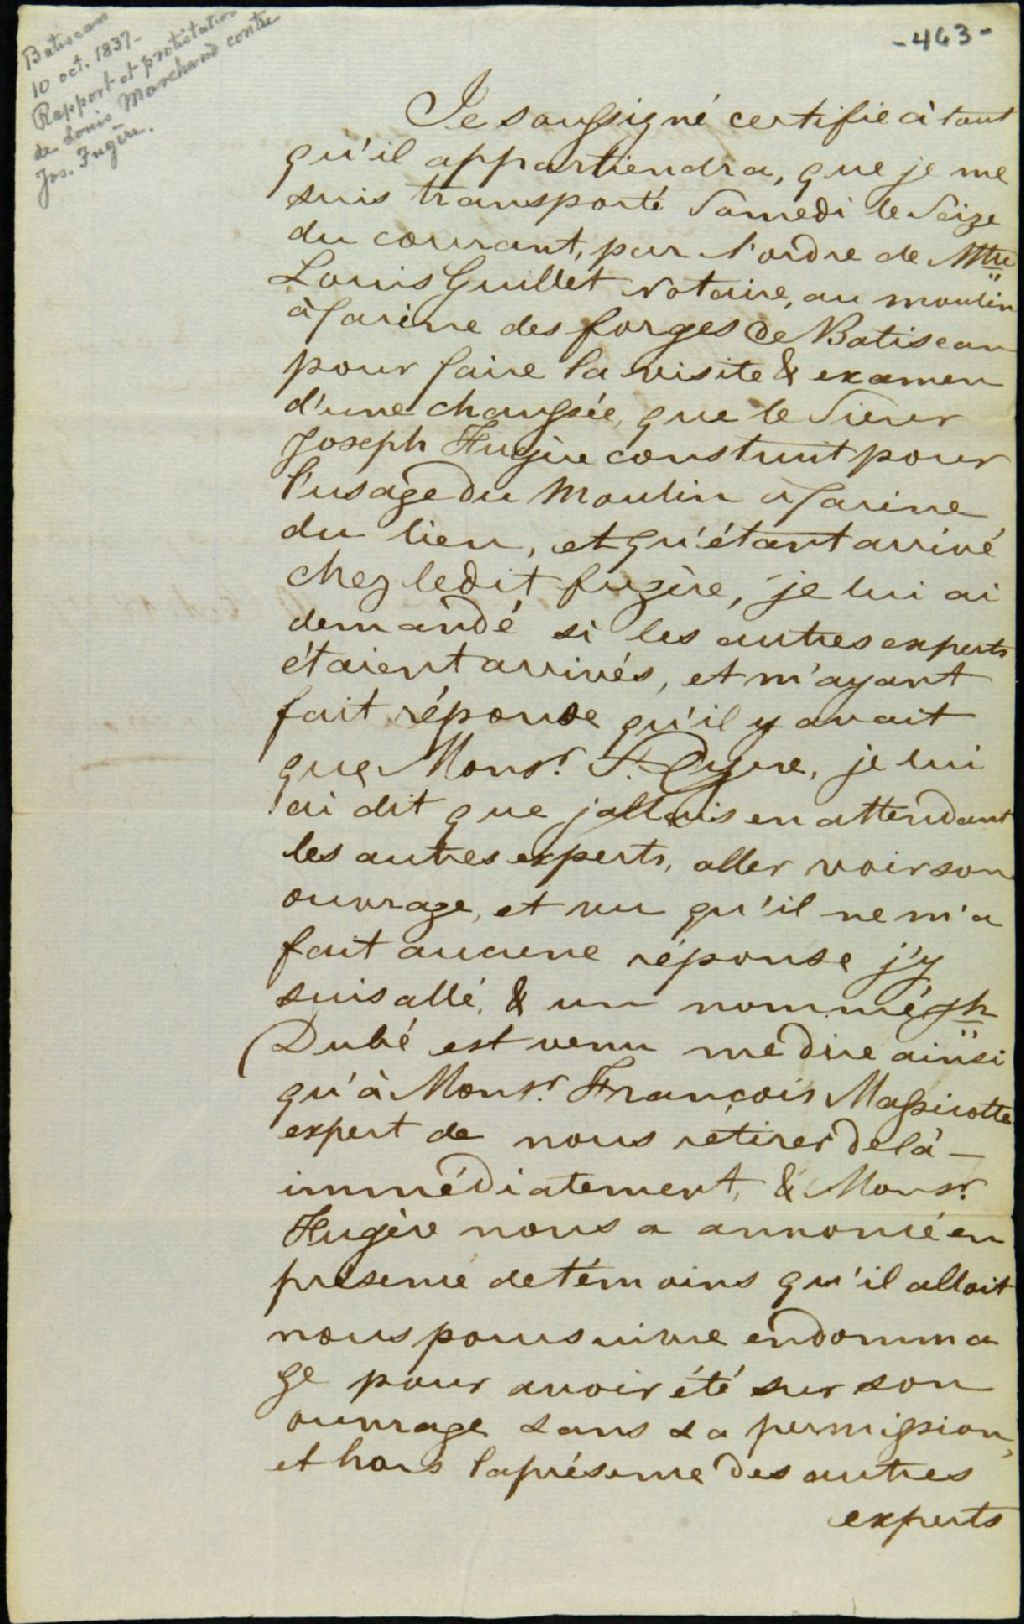 Batiscan
10 oct. 1837-
Rapport et protestation
de Louis Marchand contre
Jos. Fugère.
-463-
Je soussigné certifie à tout
qu'il appartiendra, que je me
suis transporté Samedi le Seize
du courant, par l'ordre de Mtre
Louis Guillet Notaire, au moulin
à farine des forges de Batiscan
pour faire la visite & examen
d'une chaussée, que le Sieur
Joseph Fugère construit pour
l'usage du Moulin a farine
du lieu, et qu'étant arrivé
chez ledit fugère, je lui ai
demandé si les autres experts
étaient arrivés, et m'ayant
fait réponse qu'il y avait
que Monsr. St. Cyre, je lui
ai dit que jallais en attendant
les autres experts, aller voir son
ouvrage, et vu qu'il ne m'a
fait aucune réponse j'y
suis allé, & un nommé Jh
Dubé est venu me dire ainsi
qu'à Monsr. François Massicotte
expert de nous retirer delà -
immédiatement, & Monsr.
Fugère nous a annoncé en
présence de témoins qu'il alloit
nous poursuivre en domma
ge pour avoir été sur son
ouvrage sans sa permission,
et hors la présence des autres
experts